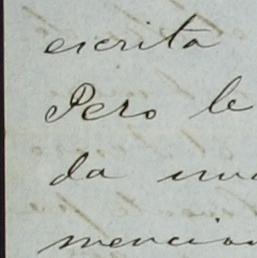 escrita
Pero le
da una
mencion